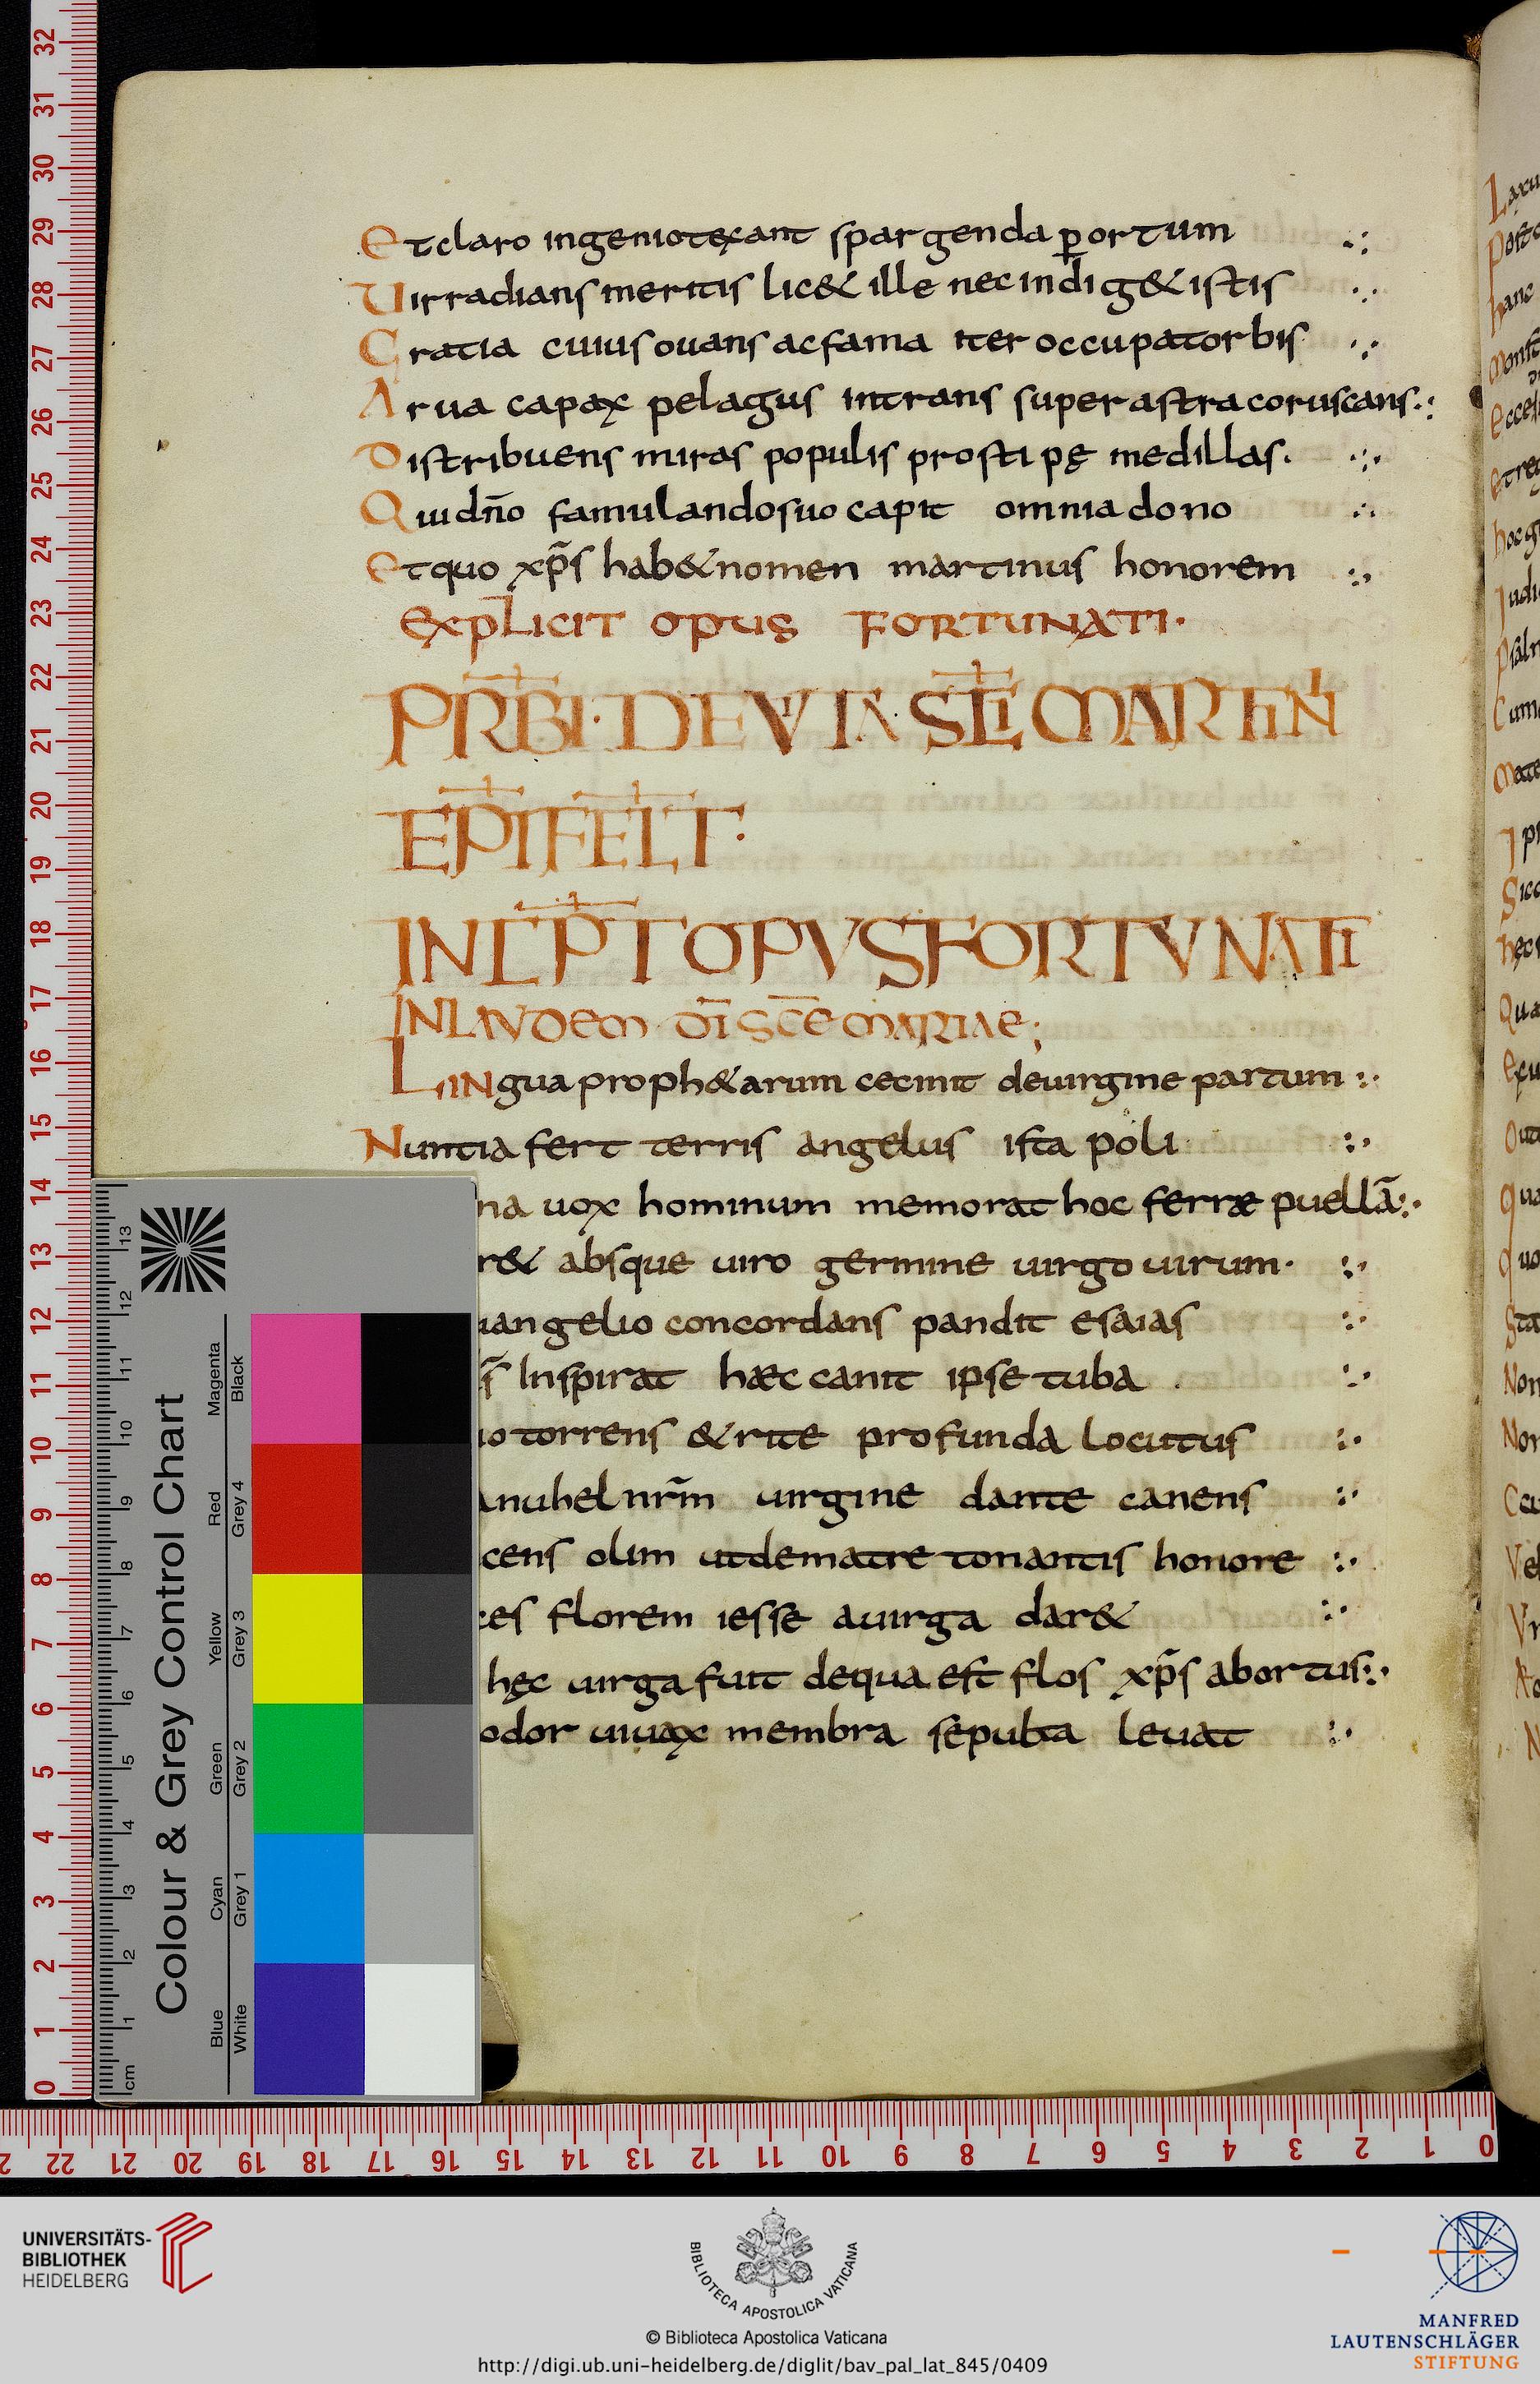 Etclaro ingeniotexant spargenda p̱ortum
Uirradians meritis lic& ille necindig& istis
Gratia cuiusouans acfama iter occupatorbis
Arua capax pelagus intrans superastracoruscans
Distribuens miras populis prostipę medillas.
Quidn̄o famulandosuo capit omnia dono
Etquo xp̄s hab&nomen martinus honorem
Explicit opus FORTUNATI.
PRBI· DE VITA SCI MARTINI
EPI FELT·
INCPT OPVS FORTVNATI
INLAVDEM DĪ SCE MARIAE;
LINgua proph&arum cecinit deuirgine partum
Nuntia fert terris angelus ista poli
na uox hominum memorat hoc ferræ puellā
r& absque uiro germine uirgo uirum.
uangelio concordans pandit esaias
s̄ Inspirat hæc canit ipse tuba
uo torrens & rite profunda locutus
anuhel nrm̄ uirgine dante canens
cens olim utdematre tonantis honore
ces florem iesse auirga dar&
hęc uirga fuit dequa est flos xp̄s abortus
odor uiuax membra sepulta leuat
Colour & Grey Control Chart
Magenta
Black
Red
Grey 4
Yellow
Grey 3
Green
Grey 2
Cyan
Grey 1
Blue
White
cm
UNIVERSITÄTS-
BIBLIOTHEK
HEIDELBERG
BIBLIOTECA APOSTOLICA VATICANA
© Biblioteca Apostolica Vaticana
http://digi.ub.uni-heidelberg.de/diglit/bav_pal_lat_845/0409
MANFRED
LAUTENSCHLÄGER
STIFTUNG